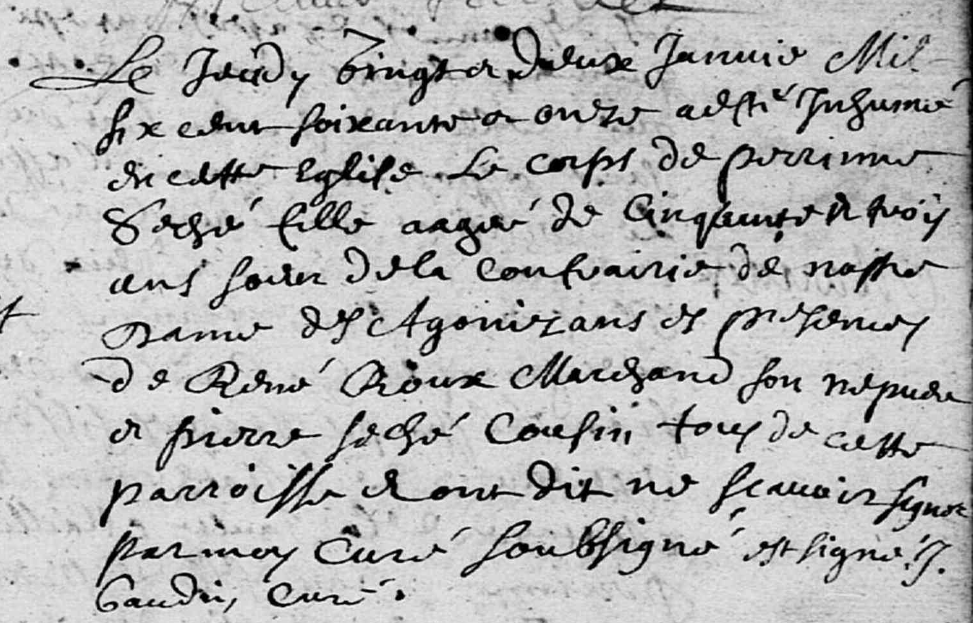 Le Jeudy Vingt et deux Januie Mil
six cent soixante et onze a esté Inhumé
en cette Eglise Le corps de perrinne
Seché fille aagée de Cinquante et trois
ans soeur de la Confrairie de nostre
Dame des Agonizans es presences
de René Roux Marchand son nepueu
et pierre seché Cousin tous de cette
parroisse et ont dit ne scauoir signer
par moy Curé soubsigné est signé J.
Gaudin, Curé.